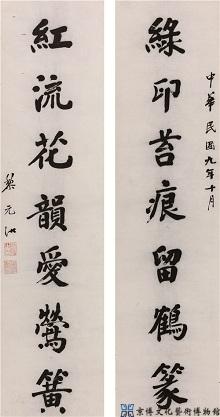 中華民國九年十月
綠印苔痕留鶴篆
紅流花韻愛鶯簧
黎元洪
京博文化藝術博物館